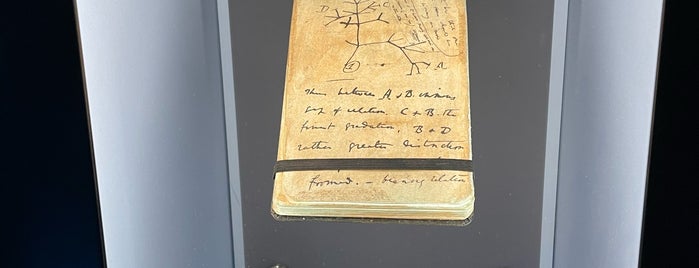 D C
A
Thus between A & B. immense
gap of relation. C & B. the
finest gradation, B & D
rather greater distinction
formed. — bearing relation